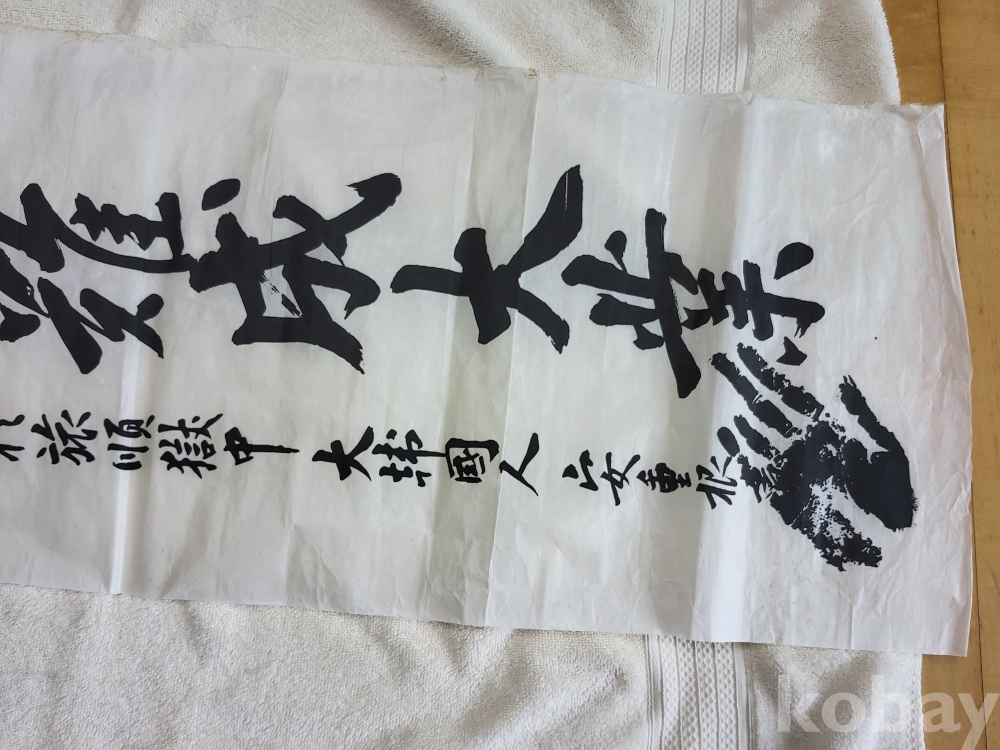 難成大業
旅順獄中 大韓國人 安重根書
kobay